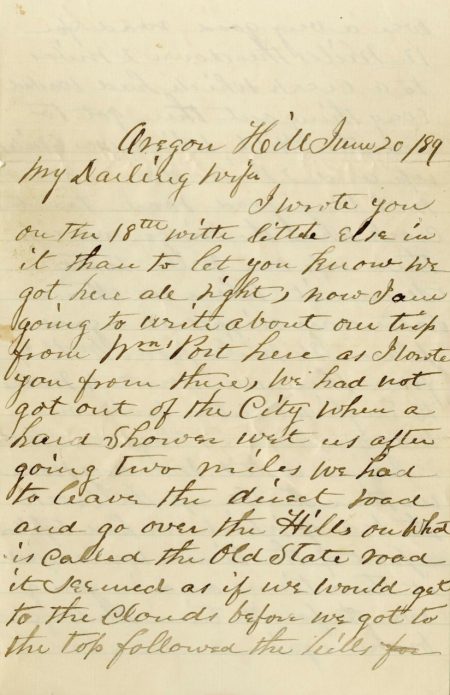 Oregon Hill June 20 /89
My Darling Wife
I wrote you
on the 18th with little Else in
it than to let you know we
got here all right, now I am
going to write about our trip
from Wms'Port here as I wrote
you from there, We had not
got out of the City when a
hard Shower wet us after
going two miles we had
to leave the direct road
and go over the Hills on What
is called the Old State road
it Seemed as if we would get
to the Clouds before we got to
the top followed the hills for